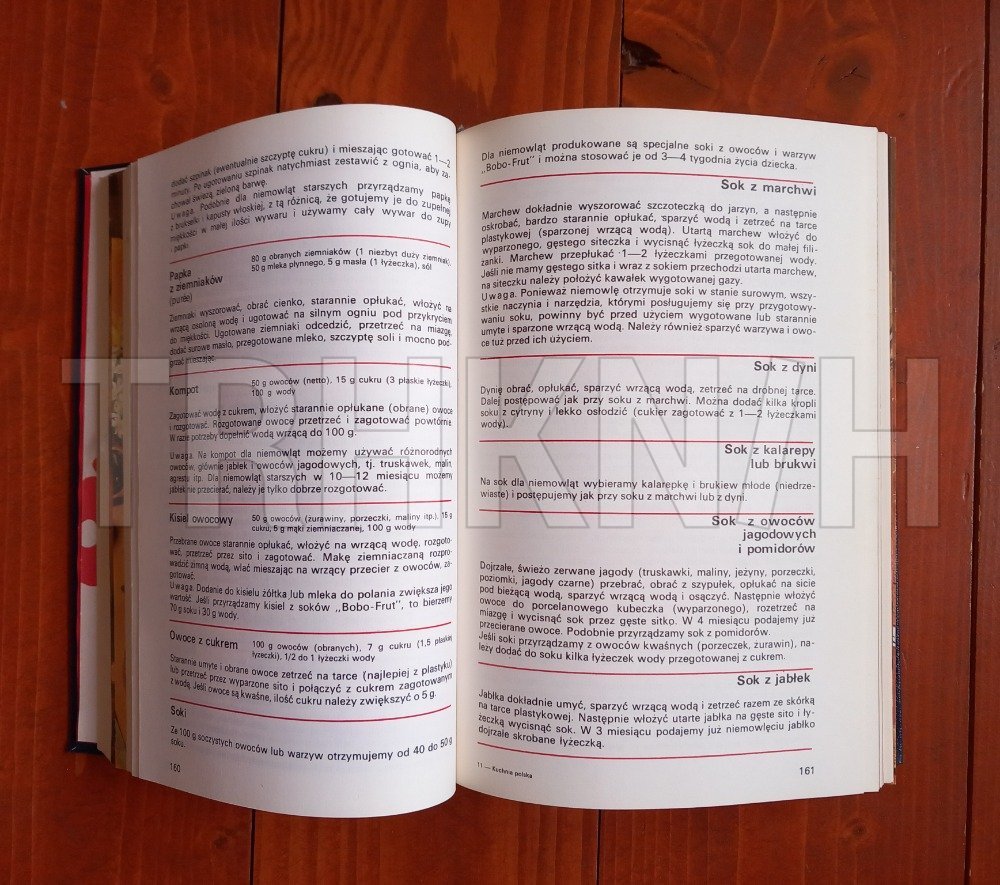 dodać szpinak (eventualnie szczyptę cukru) i mieszając gotować 1—2
minuty. Po ugotowaniu szpinak natychmiast zestawić z ognia, aby za-
chował świeżą, zieloną barwę.
Uwaga. Podobnie dla niemowląt starszych przyrządzamy papkę
z brukselki i kapusty włoskiej, z tą różnicą, że gotujemy je do zupełnej
miękkości w małej ilości wywaru i używamy cały wywar do zupy
i papki.
Papka
z ziemniaków
(purée)
80 g obranych ziemniaków (1 niezbyt duży ziemniak),
50 g mleka płynnego, 5 g masła (1 łyżeczka), sól
Ziemniaki wyszorować, obrać cienko, starannie opłukać, włożyć na
wrzącą osoloną wodę i ugotować na silnym ogniu pod przykryciem
do miękkości. Ugotowane ziemniaki odcedzić, przetrzeć na miazgę,
dodać surowe masło, przegotowane mleko, szczyptę soli i mocno pod-
grzać mieszając.
Kompot
50 g owoców (netto), 15 g cukru (3 płaskie łyżeczki),
100 g wody
Zagotować wodę z cukrem, włożyć starannie opłukane (obrane) owoce
i rozgotować. Rozgotowane owoce przetrzeć i zagotować powtórnie.
W razie potrzeby dopełnić wodą wrzącą do 100 g.
Uwaga. Na kompot dla niemowląt możemy używać różnorodnych
owoców, głównie jabłek i owoców jagodowych, tj. truskawek, malin,
agrestu itp. Dla niemowląt starszych w 10—12 miesiącu możemy
jabłek nie przecierać, należy je tylko dobrze rozgotować.
Kisiel owocowy
50 g owoców (żurawiny, porzeczki, maliny itp.), 15 g
cukru, 5 g mąki ziemniaczanej, 100 g wody
Przebrane owoce starannie opłukać, włożyć na wrzącą wodę, rozgoto-
wać, przetrzeć przez sito i zagotować. Makę ziemniaczaną rozpro-
wadzić zimną wodą, wlać mieszając na wrzący przecier z owoców, za-
gotować.
Uwaga. Dodanie do kisielu żółtka lub mleka do polania zwiększa jego
wartość. Jeśli przyrządzamy kisiel z soków „Bobo-Frut", to bierzemy
70 g soku i 30 g wody.
Owoce z cukrem
100 g owoców (obranych), 7 g cukru (1,5 płaskiej
łyżeczki), 1/2 do 1 łyżeczki wody
Starannie umyte i obrane owoce zetrzeć na tarce (najlepiej z plastyku)
lub przetrzeć przez wyparzone sito i połączyć z cukrem zagotowanym
z wodą. Jeśli owoce są kwaśne, ilość cukru należy zwiększyć o 5 g.
Soki
Ze 100 g soczystych owoców lub warzyw otrzymujemy od 40 do 50 g
soku.
160
Dla niemowląt produkowane są specjalne soki z owoców i warzyw
„Bobo-Frut" i można stosować je od 3—4 tygodnia życia dziecka.
Sok z marchwi
Marchew dokładnie wyszorować szczoteczką do jarzyn, a następnie
oskrobać, bardzo starannie opłukać, sparzyć wodą i zetrzeć na tarce
plastykowej (sparzonej wrzącą wodą). Utartą marchew włożyć do
wyparzonego, gęstego siteczka i wycisnąć łyżeczką sok do małej fili-
żanki. Marchew przepłukać 1—2 łyżeczkami przegotowanej wody.
Jeśli nie mamy gęstego sitka i wraz z sokiem przechodzi utarta marchew,
na siteczku należy położyć kawałek wygotowanej gazy.
Uwaga. Ponieważ niemowlę otrzymuje soki w stanie surowym, wszy-
stkie naczynia i narzędzia, którymi posługujemy się przy przygotowy-
waniu soku, powinny być przed użyciem wygotowane lub starannie
umyte i sparzone wrzącą wodą. Należy również sparzyć warzywa i owo-
ce tuż przed ich użyciem.
Sok z dyni
Dynię obrać, opłukać, sparzyć wrzącą wodą, zetrzeć na drobnej tarce.
Dalej postępować jak przy soku z marchwi. Można dodać kilka kropli
soku z cytryny i lekko osłodzić (cukier zagotować z 1—2 łyżeczkami
wody).
Sok z kalarepy
lub brukwi
Na sok dla niemowląt wybieramy kalarepkę i brukiew młode (niedrze-
wiaste) i postępujemy jak przy soku z marchwi lub z dyni.
Sok z owoców
jagodowych
i pomidorów
Dojrzałe, świeżo zerwane jagody (truskawki, maliny, jeżyny, porzeczki,
poziomki, jagody czarne) przebrać, obrać z szypułek, opłukać na sicie
pod bieżącą wodą, sparzyć wrzącą wodą i osączyć. Następnie włożyć
owoce do porcelanowego kubeczka (wyparzonego), rozetrzeć na
miazgę i wycisnąć sok przez gęste sitko. W 4 miesiącu podajemy już
przecierane owoce. Podobnie przyrządzamy sok z pomidorów.
Jeśli soki przyrządzamy z owoców kwaśnych (porzeczek, żurawin), na-
leży dodać do soku kilka łyżeczek wody przegotowanej z cukrem.
Sok z jabłek
Jabłka dokładnie umyć, sparzyć wrzącą wodą i zetrzeć razem ze skórką
na tarce plastykowej. Następnie włożyć utarte jabłka na gęste sito i ły-
żeczką wycisnąć sok. W 3 miesiącu podajemy już niemowlęciu jabłko
dojrzałe skrobane łyżeczką.
11 — Kuchnia polska
161
TRHKNVH